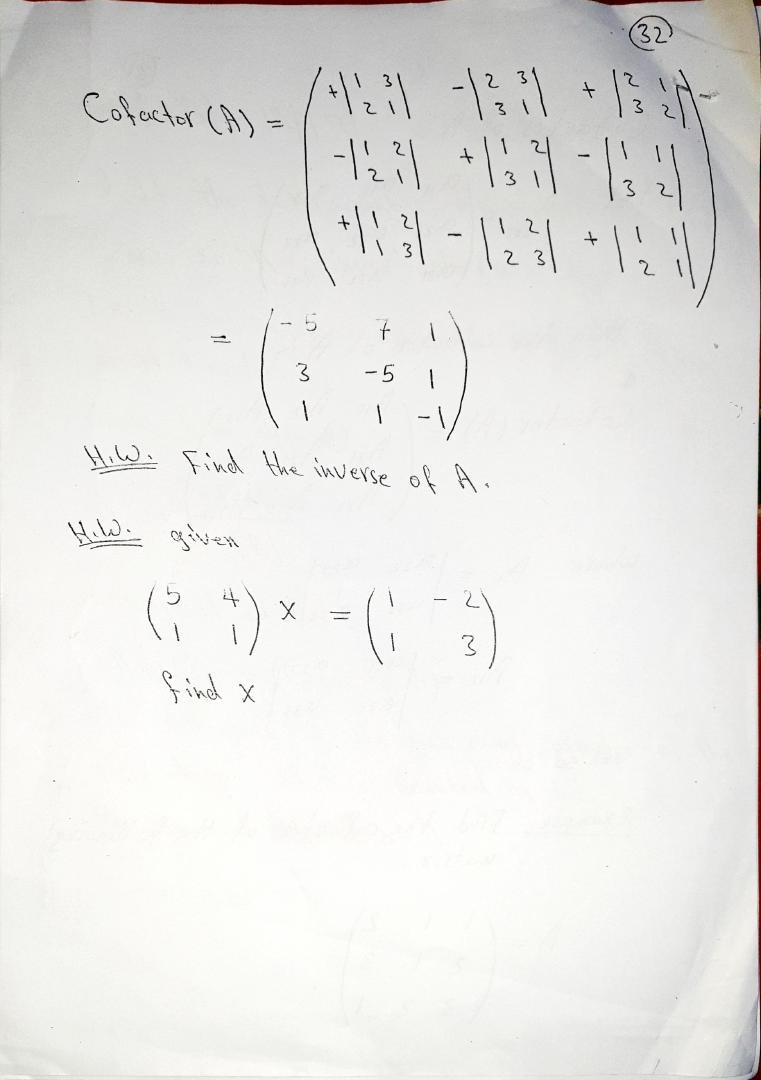 32
Cofactor (A) = ( +|1 3; 2 1| -|2 3; 3 1| +|2 1; 3 2|
-|1 2; 2 1| +|1 2; 3 1| -|1 1; 3 2|
+|1 2; 1 3| -|1 2; 2 3| +|1 1; 2 1| )
= ( -5 7 1
3 -5 1
1 1 -1 )
H.W. Find the inverse of A.
H.W. given
( 5 4 ) x = ( 1 -2 )
( 1 1 ) ( 1 3 )
find x